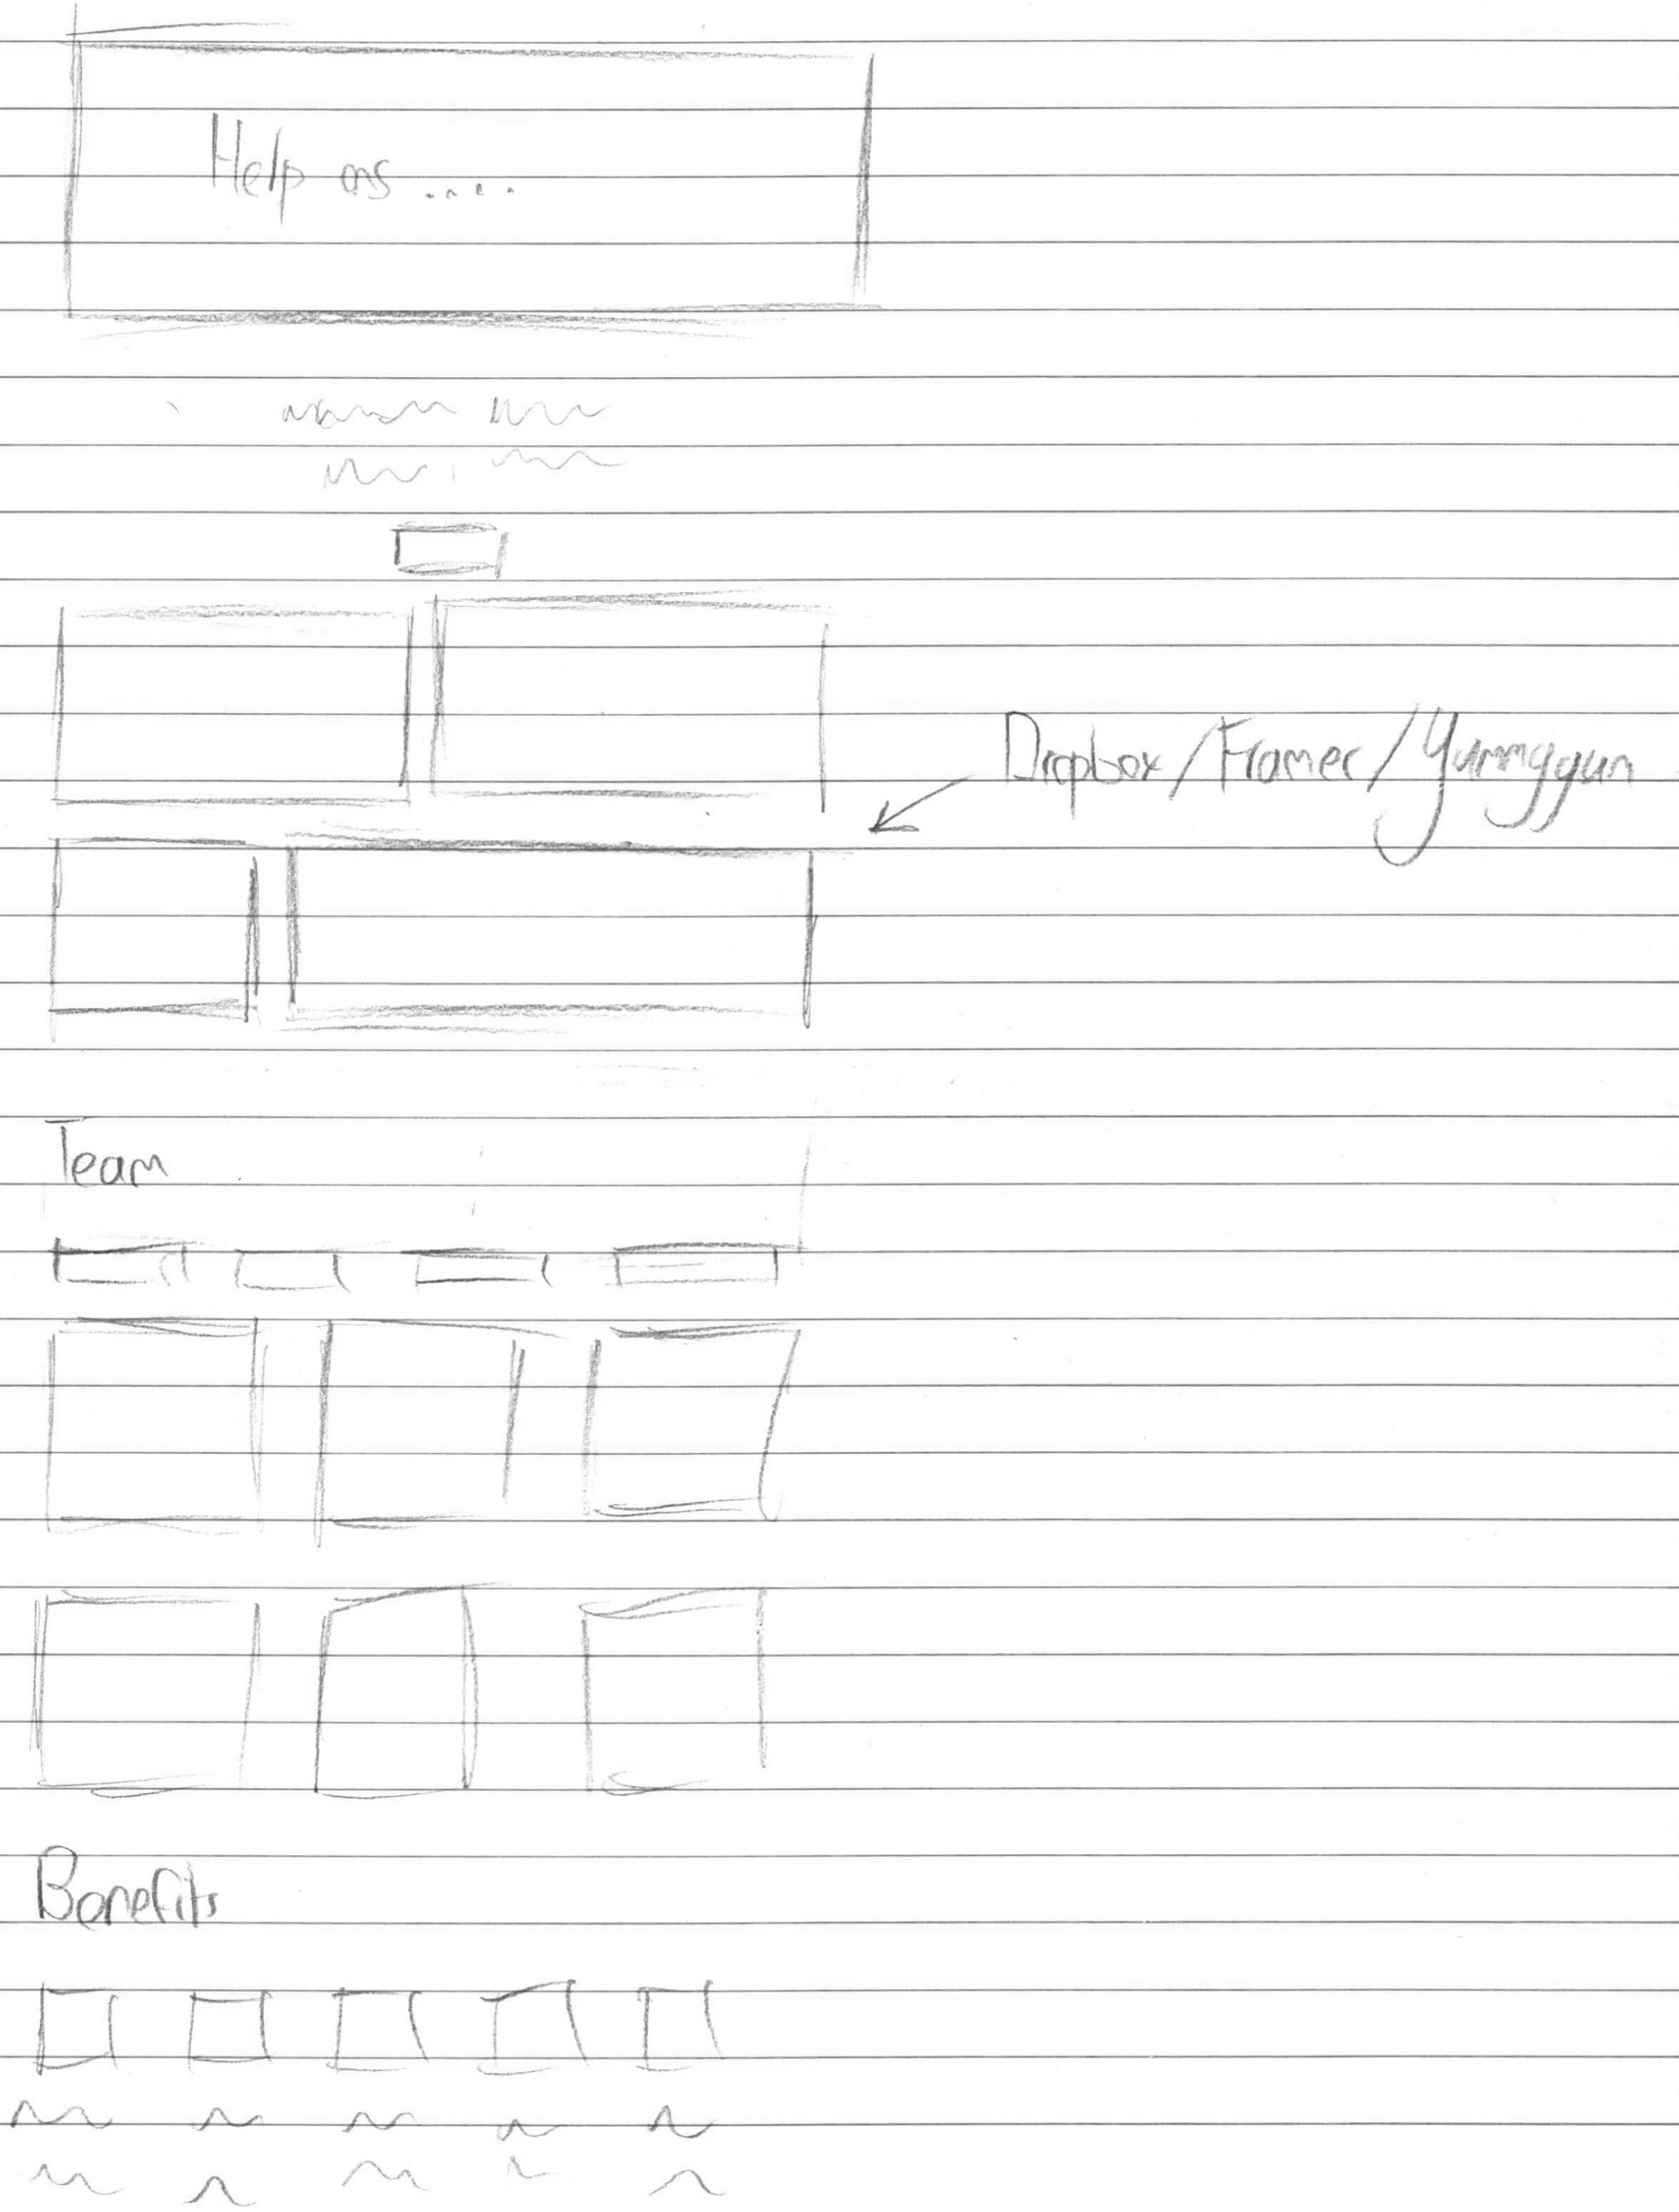 Help us ....
Dropbox/Framer/Yummygum
Team
Benefits